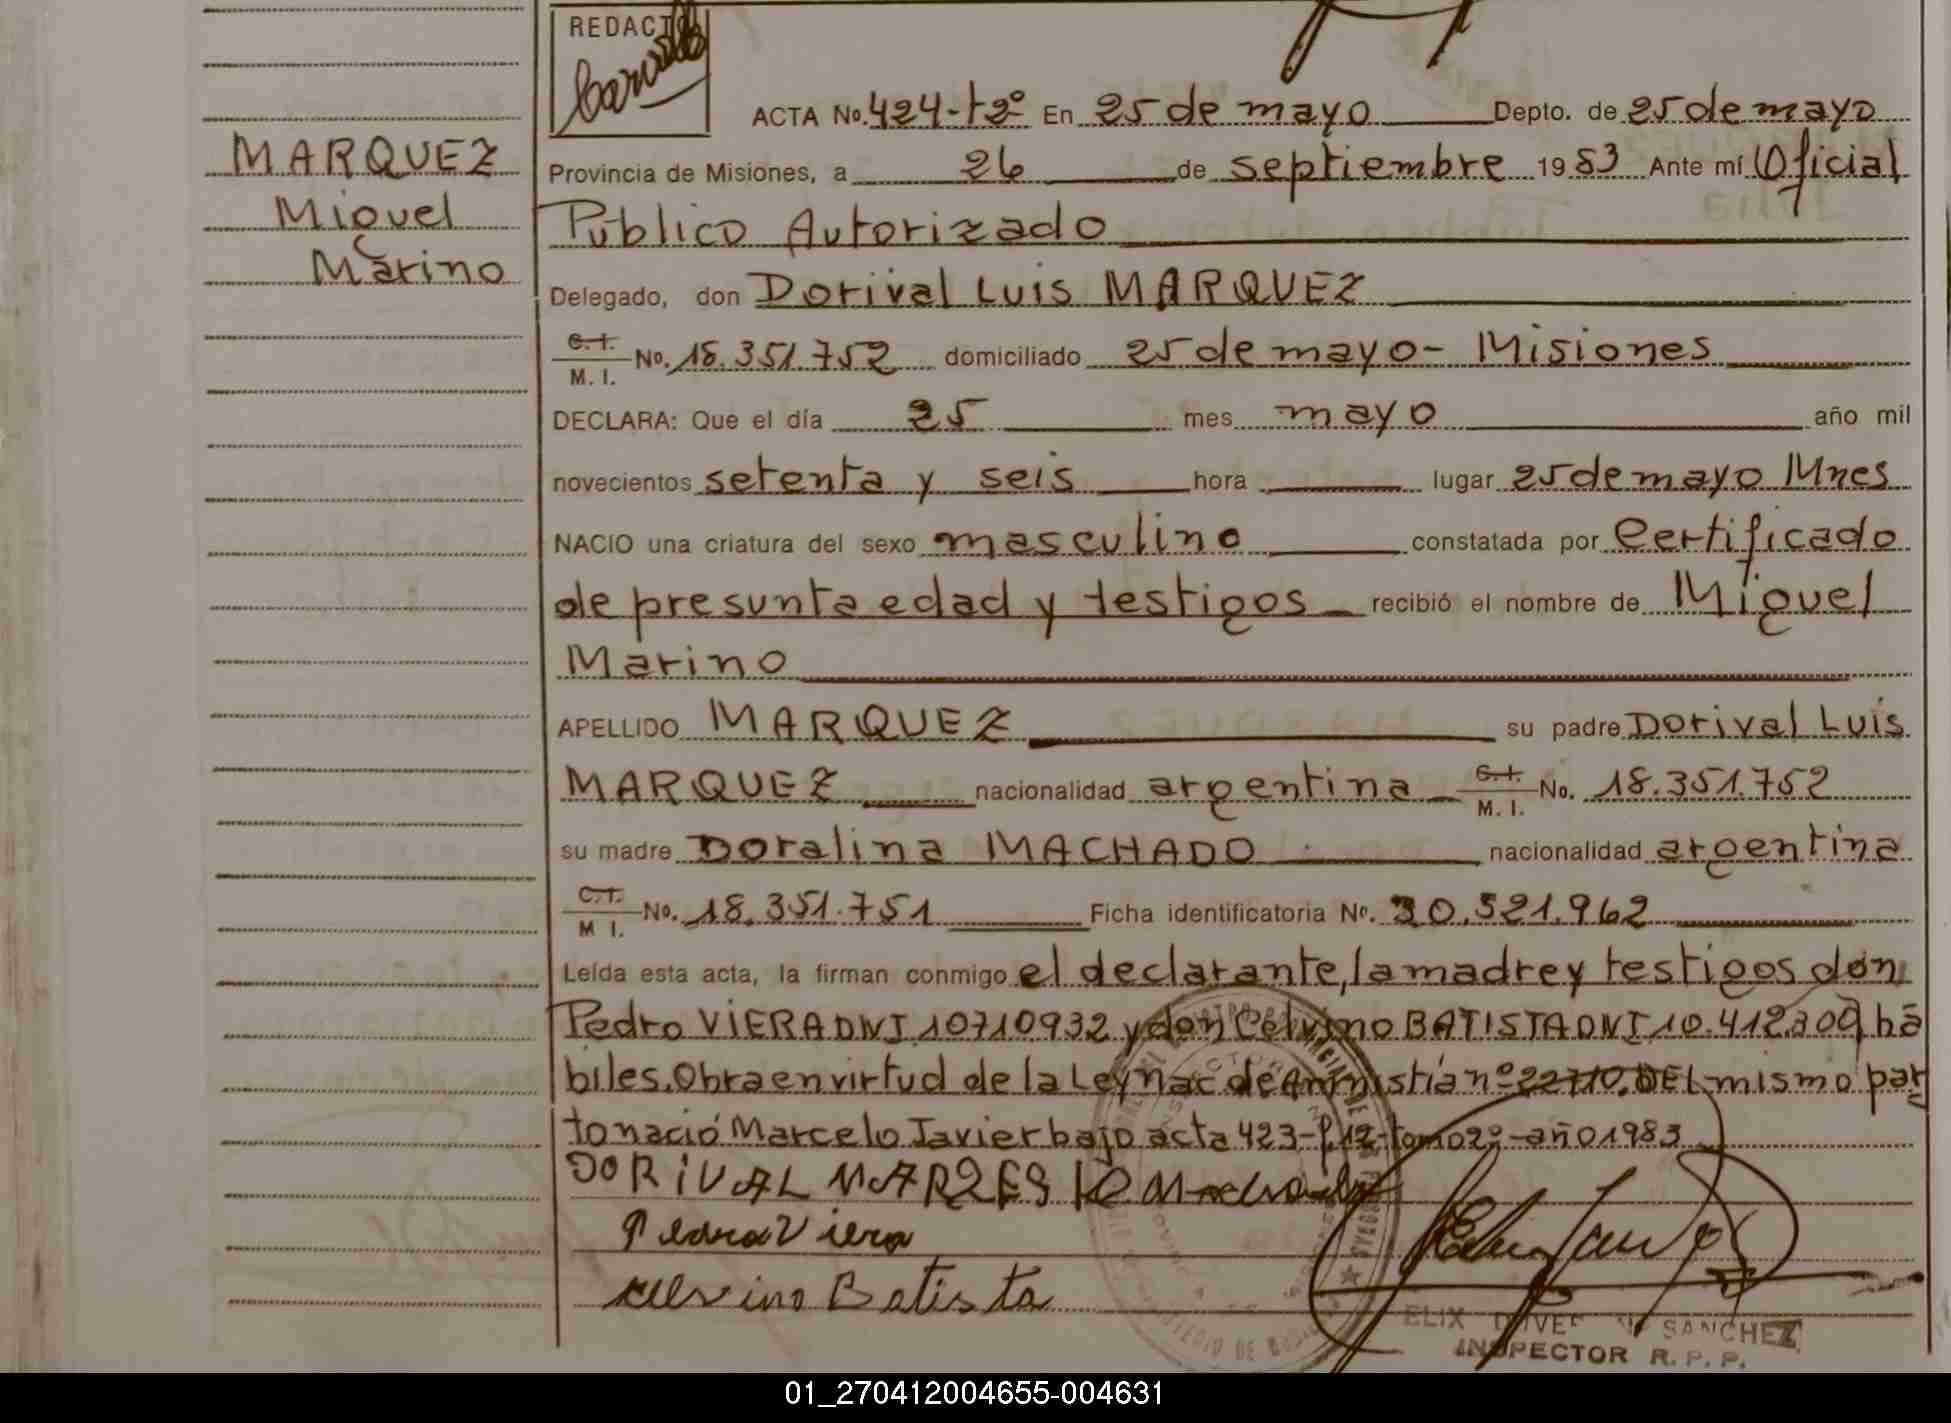 REDACT
ACTA No. 424-t2º En 25 de mayo Depto. de 25 de mayo
MARQUEZ
Miguel
Marino
Provincia de Misiones, a 26 de septiembre 1983 Ante mí Oficial
Público Autorizado
Delegado, don Dorival Luis MARQUEZ
C.I. M. I. No. 18.351.752 domiciliado 25 de mayo - Misiones
DECLARA: Que el día 25 mes mayo año mil
novecientos setenta y seis hora lugar 25 de mayo Mnes
NACIO una criatura del sexo masculino constatada por Certificado
de presunta edad y testigos recibió el nombre de Miguel
Marino
APELLIDO MARQUEZ su padre Dorival Luis
MARQUEZ nacionalidad argentina C.I. M. I. No. 18.351.752
su madre Doralina MACHADO nacionalidad argentina
C.I. M I. No. 18.351.751 Ficha identificatoria Nº. 30.521.962
Leída esta acta, la firman conmigo el declarante, la madre y testigos don
Pedro VIERA DNI 10710932 y don Celvino BATISTA DNI 10.412.309, há
biles. Obra en virtud de la Ley Nac de Amnistía nº 22710. DEL mismo par
to nació Marcelo Javier bajo acta 423-f.12-tomo 2º-año 1983
DORIVAL MARQES D Machado
Pedro Viera
celvino Batista
SANCHEZ
INSPECTOR R. P. P.
01_270412004655-004631